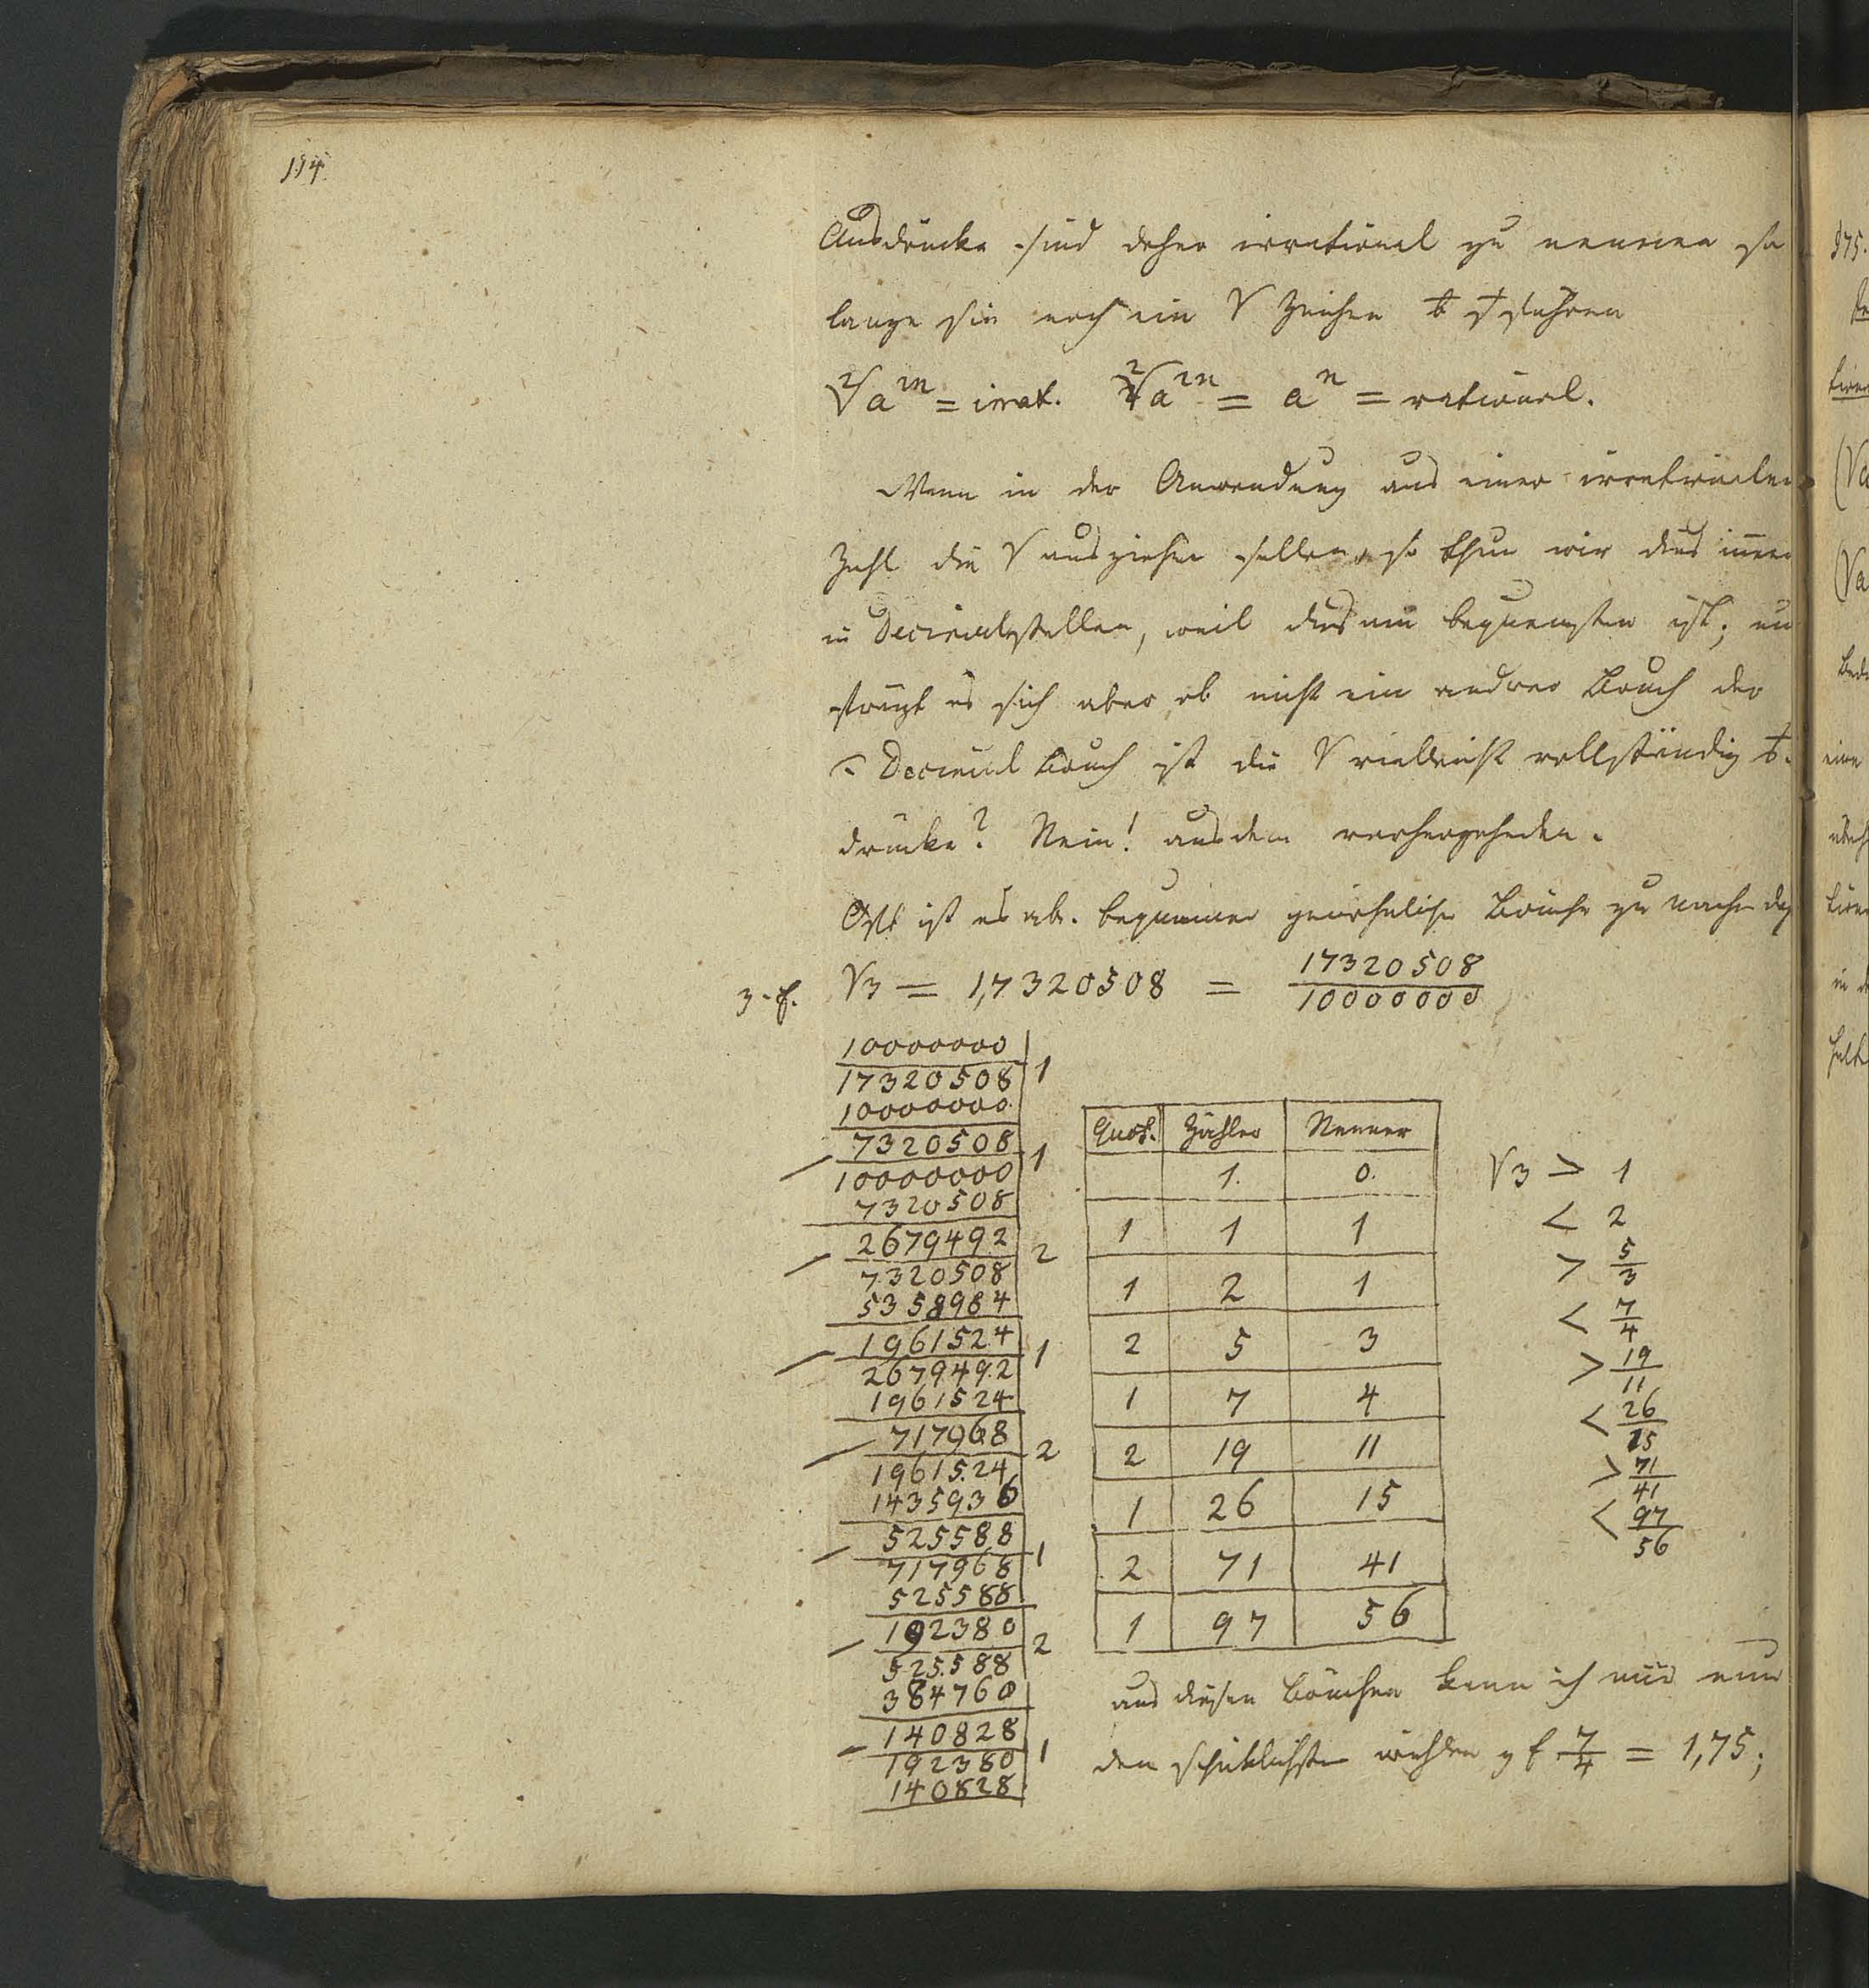 114
Ausdrücke sind daher irrational zu nennen so
lange sie noch ein √ Zeichen führen
²√a^m = irrat. ²√a^2n = a^n = rational.
Wenn in der Anwendung aus einer irrationalen
Zahl die √ ausziehen sollen, so thun wir dies immer
in Decimalstellen, weil dies am bequemsten ist; nu
frägt es sich aber, ob nicht ein andrer Bruch der
Decimal Bruch ist die √ vielleicht vollständig
drücke? Nein! aus dem vorhergehenden.
Oft ist es ab. bequemer gewöhnliche Brüche zu machen
z. E. √3 = 1,7320508 = 17320508/10000000
10000000
17320508 1
10000000
7320508
10000000 1
7320508
2679492
7320508 2
5358984
1961524
2679492 1
1961524
717968
1961524 2
1435936
525588
717968 1
525588
192380
525588 2
384760
140828
192380 1
140828
Quot. Zähler Nenner
1. 0.
1 1 1
1 2 1
2 5 3
1 7 4
2 19 11
1 26 15
2 71 41
1 97 56
√3 > 1
< 2
> 5/3
< 7/4
> 19/11
< 26/15
> 71/41
< 97/56
aus diesen Brüchen kann ich mir nun
den schicklichsten wählen z E 7/4 = 1,75;
§75.